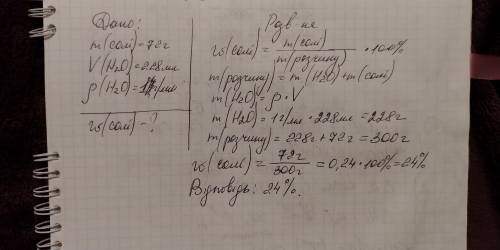 Дано:
m(солі)=72г
V(H₂O)=228мл
ρ(H₂O)=1г/мл
w(солі)-?
Розв-ня
w(солі)= m(солі)/m(розчину) · 100%
m(розчину)=m(H₂O)+m(солі)
m(H₂O)=ρ·V
m(H₂O)=1г/мл*228мл=228г
m(розчину)=228г+72г=300г
w(солі)= 72г/300г =0,24*100%=24%
Відповідь: 24%.